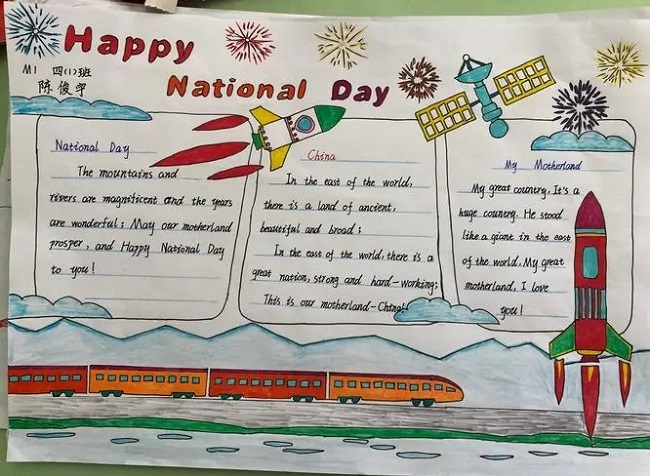 Happy
National Day
M1 四(1)班
陈俊宇
National Day
The mountains and
rivers are magnificent and the years
are wonderful; May our motherland
prosper, and Happy National Day
to you!
China
In the east of the world,
there is a land of ancient,
beautiful and broad;
In the east of the world, there is a
great nation, strong and hard-working;
This is our motherland-China!
My Motherland
My great country. It's a
huge country. He stood
like a giant in the east
of the world. My great
motherland, I love
you!